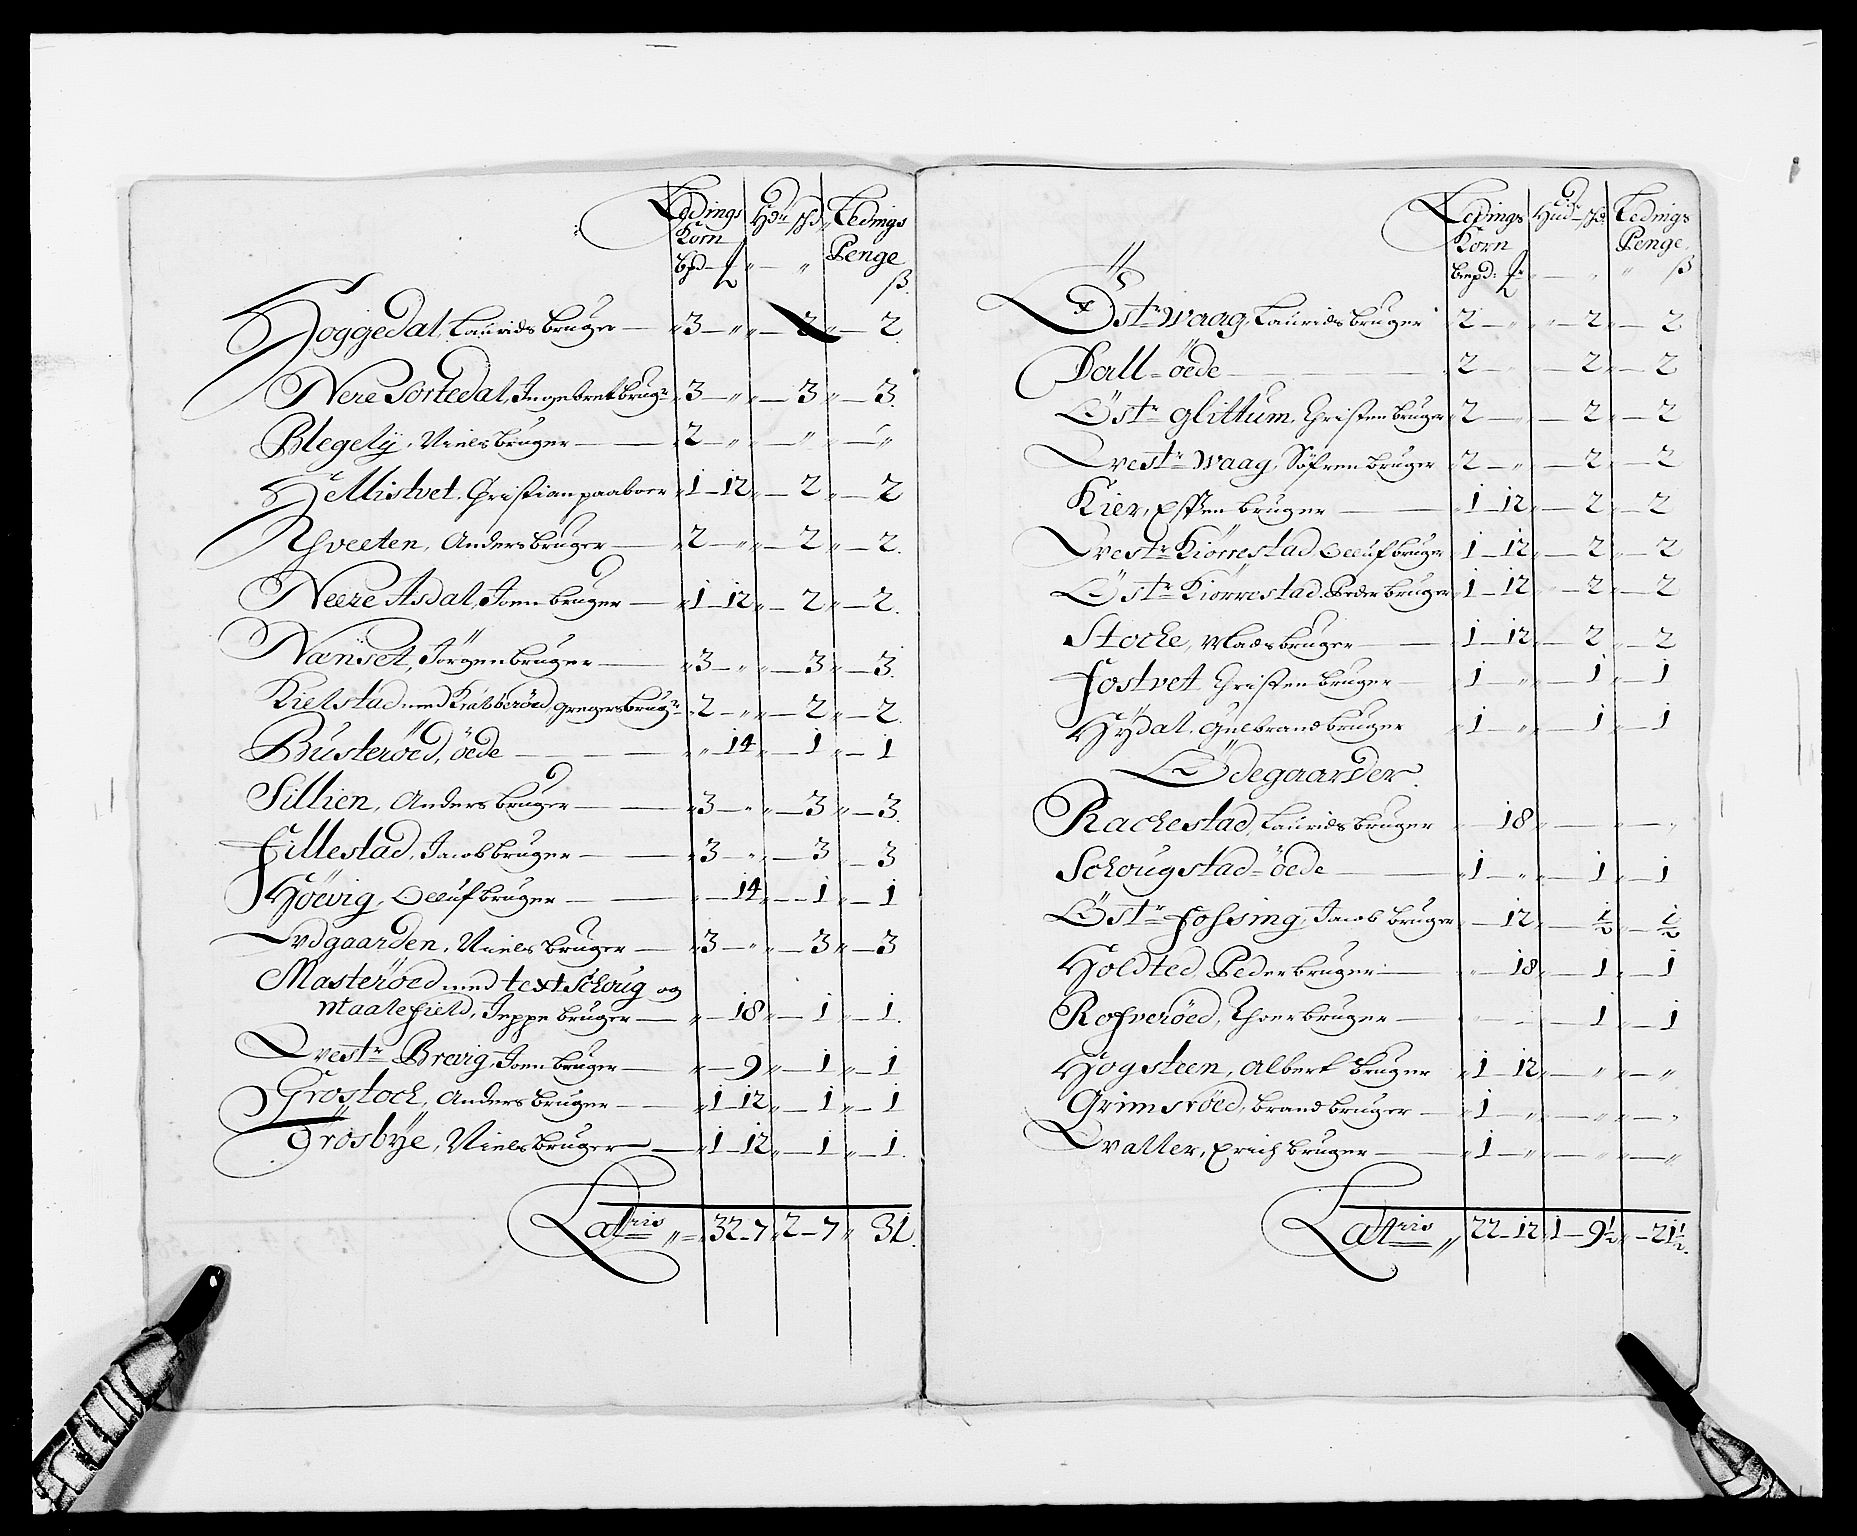 Ledings Hu: Ledings
Korn Penge
Bpd ß.
Hoggedal, Laurids bruger — 3 — „ — 2 — 2.
Nere Sortedal, Ingebret brugr 3 — „ — 3 — 3.
Blegely, Niels bruger — 2 — „ — „ — „
Hellistvet, Christian paaboer 1 — 12 — 2 — 2
Qveeten, Anders bruger — 2 — „ — 2 — 2.
Neere Asdal, Joen bruger — 1 — 12 — 2 — 2.
Nænset, Jörgen bruger — 3 — „ — 3 — 3.
Kielstad med Krabberöed, Gregers brugr 2 — „ — 2 — 2.
Busteröed, öede — „ 14 — 1 — 1
Sillien, Anders bruger — 3 — „ — 3 — 3.
Fillestad, Jacob bruger — 3 — „ — 3 — 3
Höevig, Oeluf bruger — 14 — 1 — 1
Udgaarden, Niels bruger — 3 — „ — 3 — 3
Masteröed med texschoug og
Maalefield, Jeppe bruger — 18 — 1 — 1.
Vestr Brevig, Joen bruger — 9 — 1 — 1
Grostock, Anders bruger — 1 — 12 — 1 — 1
Frosbye, Niels bruger — 1 — 12 — 1 — 1.
Latris „ 32 — 7 2 — 7 „ 31.
Ledings Hud Ledings
Korn Penge
Bmpd: ß
Östr Waag, Laurids bruger 2 — „ — 2 — 2
Dall öede — 2 — „ — 2 — 2
Östr Glittum, Christen bruger 2 — „ — 2 — 2
Vestr Waag, Söfren bruger 2 — „ — 2 — 2
Kier, Essen bruger — 1 — 12 — 2 — 2
Vestr Kiörrestad Oeluf bruger 1 — 12 — 2 — 2
Östr Kiörrestad Peder bruger 1 — 12 — 2 — 2
Stocke, Mads bruger — 1 — 12 — 2 — 2
Fostvet Christen bruger — 1 — „ — 1 — 1
Hydal, Gulbrand bruger 1 — „ — 1 — 1
Ödegaarder.
Rachestad, Laurids bruger — 18 — „ — „
Schougstad öede — 1 — „ — 1 — 1
Östr Fossing, Jacob bruger — 12 — ½ — ½
Holdted, Peder bruger — 18 — 1 — 1
Rofveröed, Thoer bruger — 1 — 1
Hogsteen, Albert bruger 1 — 12 — „ — „
Grimsröed, Brand bruger — 1 — „ — „ — „
Valler, Erich bruger — 1 — „ — „ — „
Latris „ 22 — 12 1 — 9½ „ — 21½.